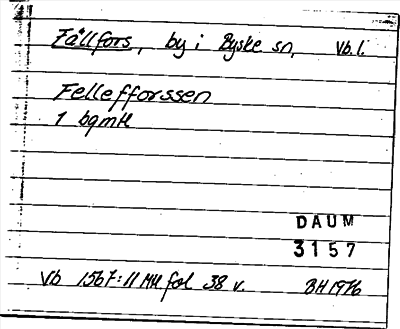 Fällfors, by i Byske sn, Vb.l.
Fellefforssen
1 bqmtl
DAUM
3157
Vb 1567:11 MH fol 38 v. BH 1976